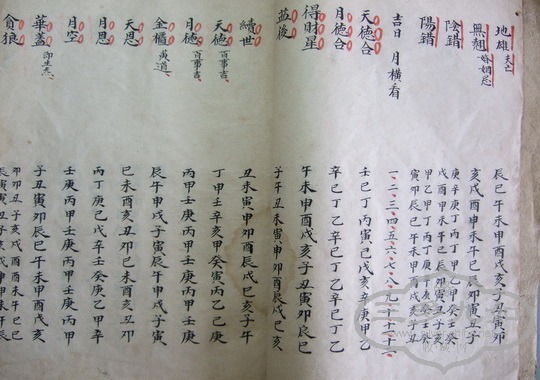 地雄 夫亡 辰巳午未申酉戌亥子丑寅卯
無翹 婚姻忌 亥戌酉申未午巳辰卯寅丑子
陰錯 庚辛庚丁丙丁甲乙甲癸壬癸
戌酉申未午巳辰卯寅丑子亥
陽錯 甲乙甲丁丙丁庚辛庚癸壬癸
吉日 月橫看 一、二、三、四、五、六、七、八、九、十、十一、十二、
天德合 壬巳丁丙寅己戊亥辛庚甲乙
月德合 辛己丁乙辛己丁乙辛己丁乙
得財星 午未申酉戌亥子丑寅卯辰巳
益後 子午丑未寅申卯酉辰戌巳亥
續世 丑未寅申卯酉辰戌巳亥子午
天德 百事吉 丁申壬辛亥甲癸寅丙乙己庚
月德 百事吉 丙甲壬庚丙甲壬庚丙甲壬庚
金櫃 黃道 辰午申戌子寅辰午申戌子寅
天恩 巳未酉亥丑卯巳未酉亥丑卯
月恩 丙丁庚己戊辛壬癸庚乙甲辛
月空 壬庚丙甲壬庚丙甲壬庚丙甲
華蓋 子丑寅卯辰巳午未申酉戌亥
貪狼